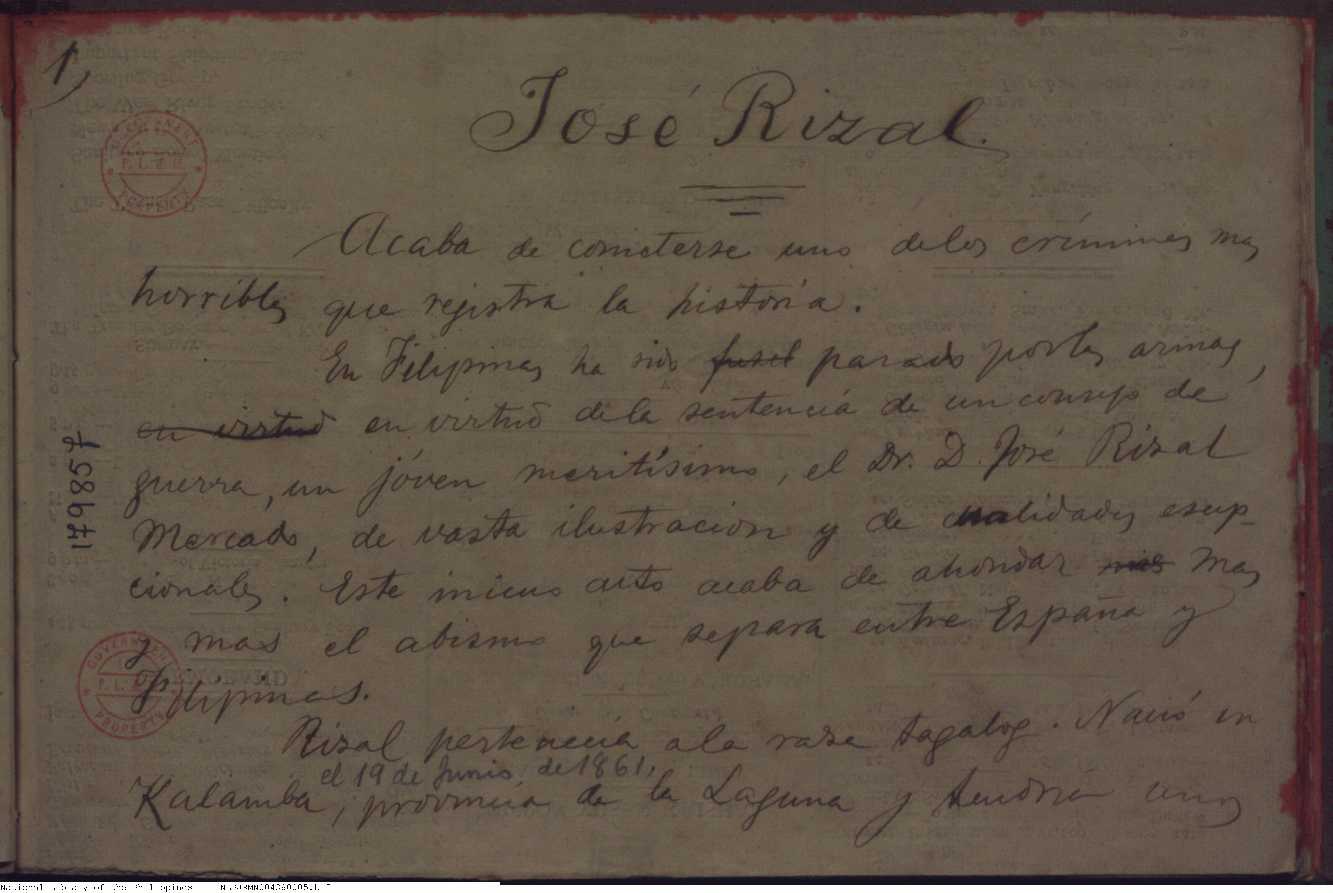 1,
José Rizal.
Acaba de cometerse uno delos crímines mas
horribles que registra la historia.
En Filipinas ha sido fusil parado por las armas,
en virtud en virtud dela sentencia de un consejo de
guerra, un jóven meritísimo, el Dr. D. José Rizal
Mercado, de vasta ilustracion y de cualidades escep-
cionales. Este inicuo acto acaba de ahondar mas mas
y mas el abismo que separa entre España y
Filipinas.
Rizal pertenecia ala raza tagalog. Nació en
el 19 de Junio de 1861,
Kalamba, provincia de la Laguna y tendria unos
179857
GOVERNMENT
PROPERTY
GOVERNMENT
PROPERTY
National Library of the Philippines